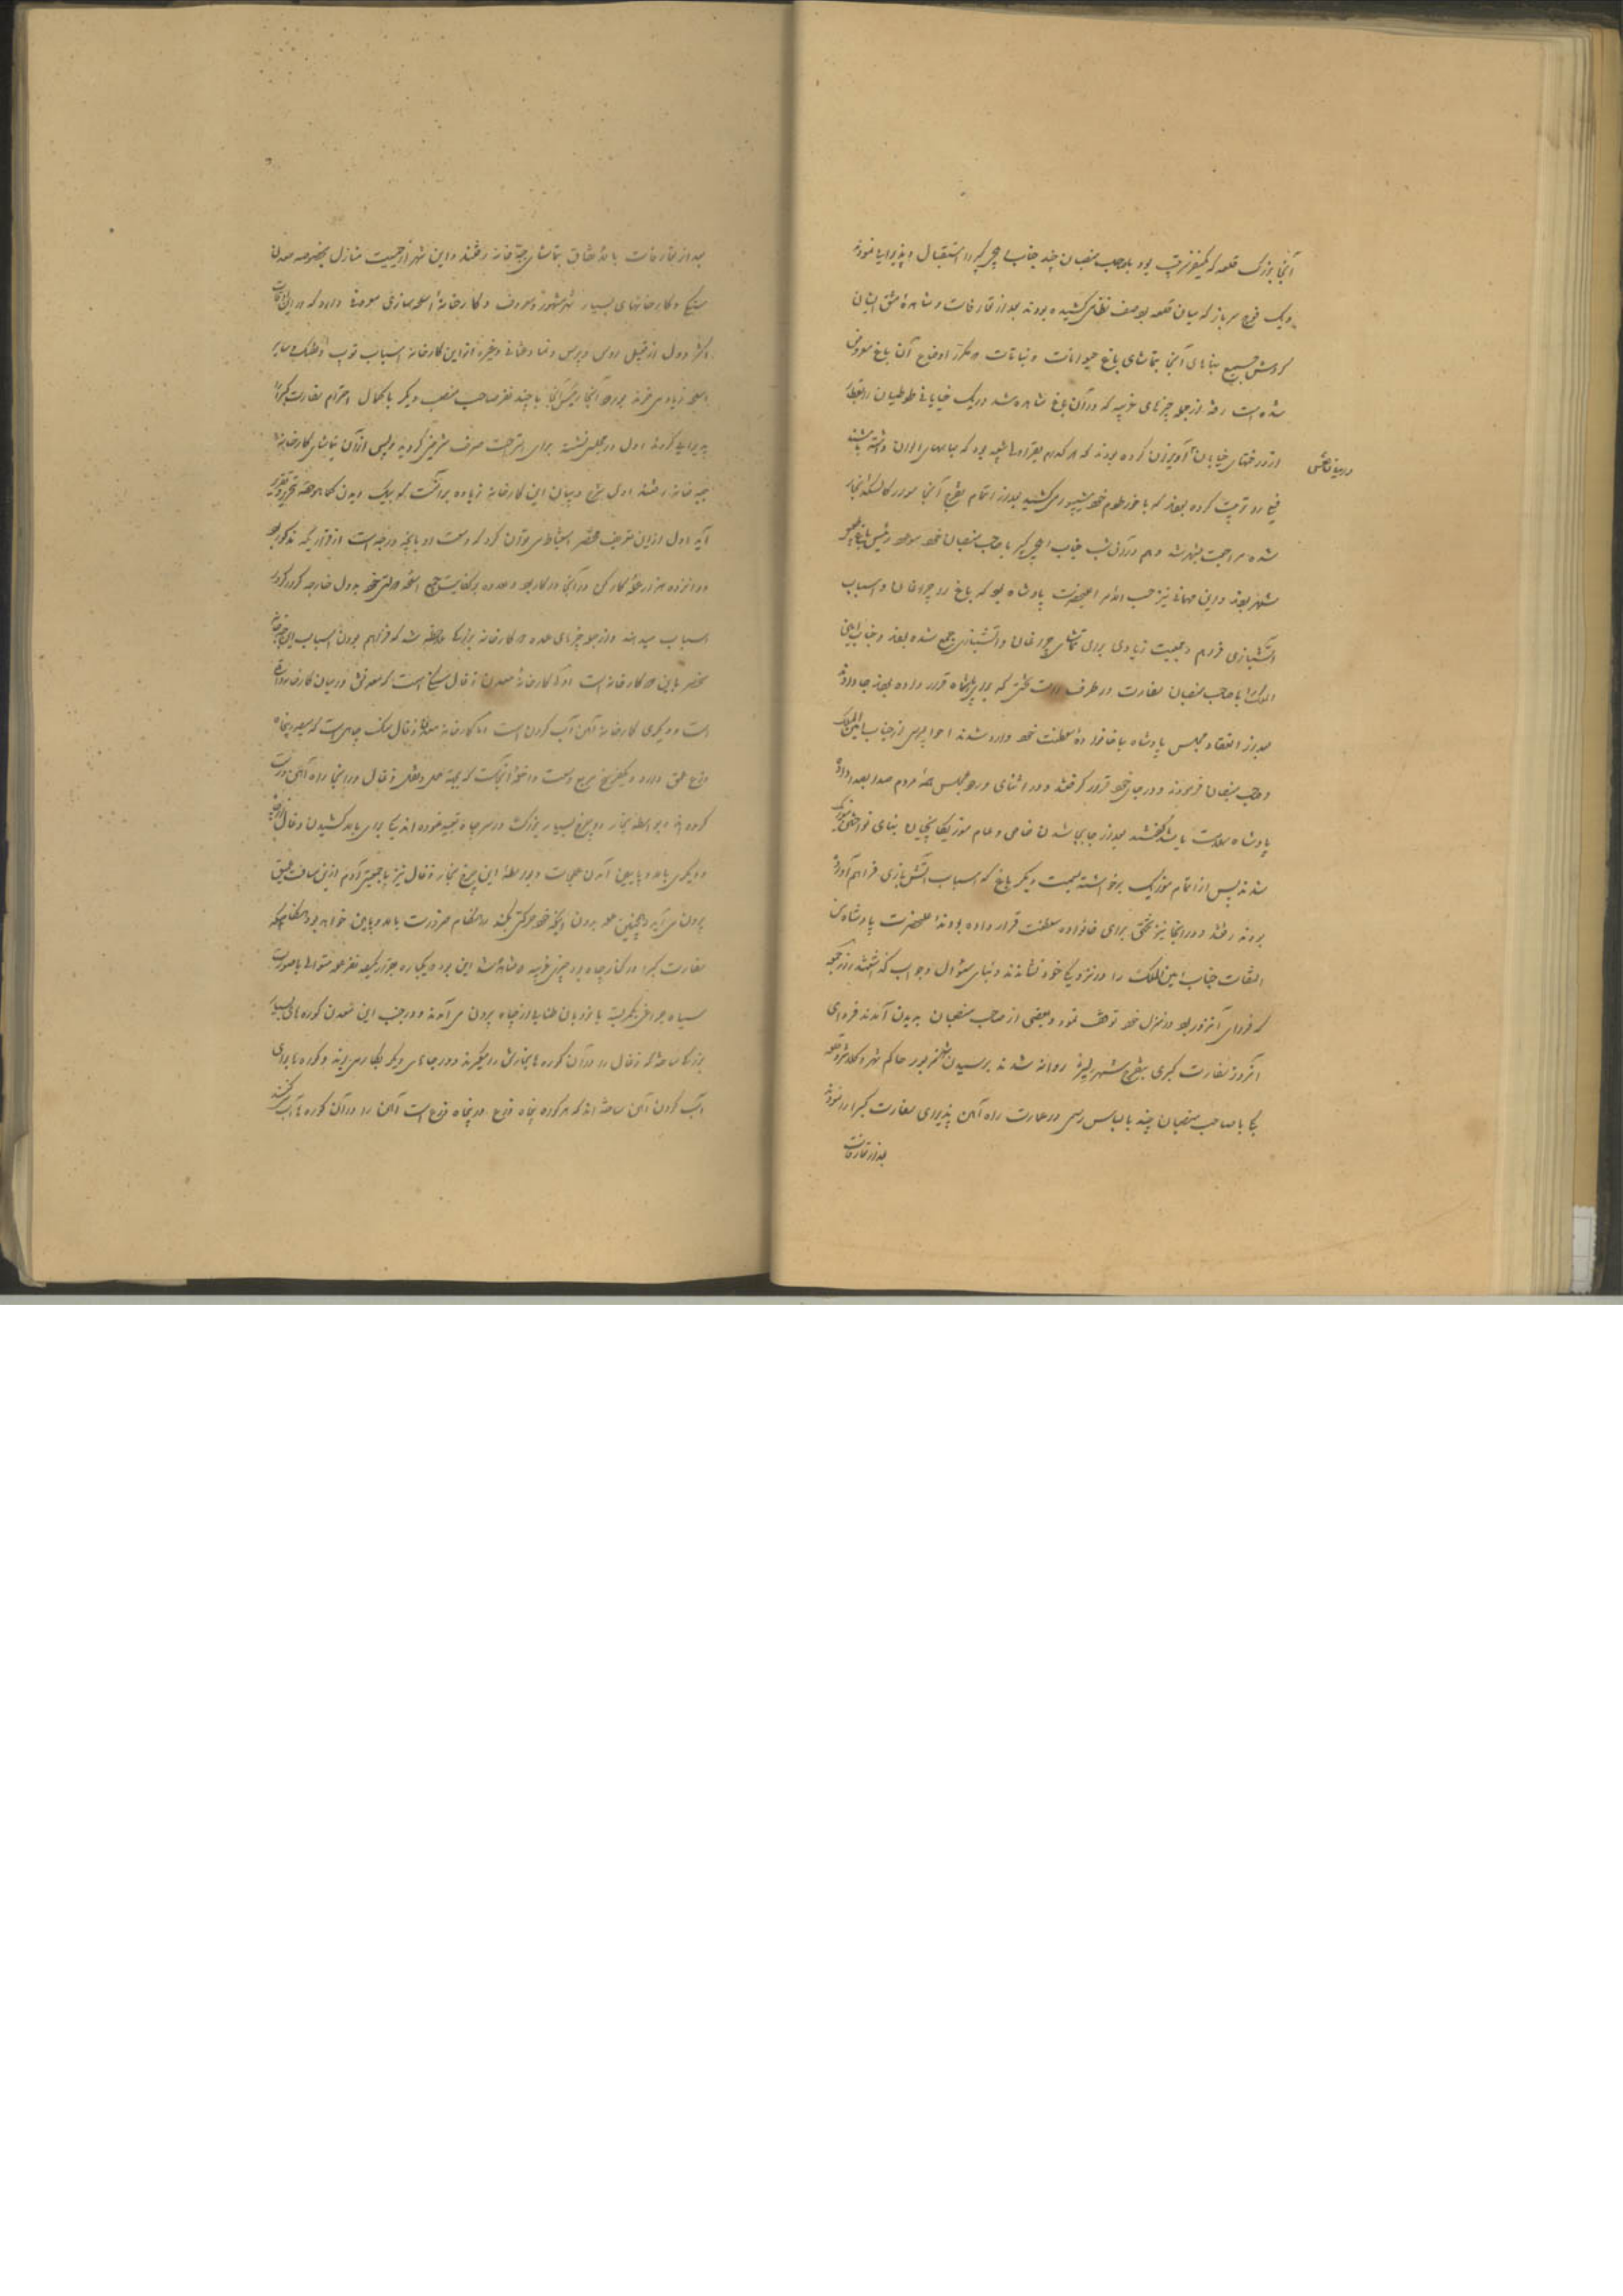 آنجا بزرگ قلعه که یکنفر سرتیپ بود با صاحب منصبان چند جناب ایلچی کبیر را استقبال و پذیرایی نموده
و یک فوج سرباز که میان قلعه بود صف نظامی کشیده بودند بعد از تعارفات و مشاهده مشق ایشان
گردش جمیع بناهای آنجا بتماشای باغ حیوانات و نباتات که مکرر اوضاع آن باغ معروض
شده است رفته از جمله چیزهای غریبه که در آن باغ مشاهده شد در یک خیابانی طوطیان
از درختهای خیابان آویزان کرده بودند که هر کدام بود که میانهای الوان داشته باشند
فیلی را تربیت کرده بودند که با خرطوم خود شیپور می کشید بعد از اتمام تفرج آنجا سوار کالسکه بخار
شده مراجعت بشهر شد و هم در آن شب جناب ایلچی کبیر با صاحب منصبان خود موعود رئیس باغ
شهر بودند و این مهمانی نیز حسب الامر اعلیحضرت پادشاه بود که باغ را چراغان و اسباب
آتشبازی فراهم و جمعیت زیادی برای تماشای چراغان و آتشبازی جمع شده بودند و جناب امین
الملک با صاحب منصبان سفارت در طرف راست تختی که برای پادشاه قرار داده بودند جا دادند
بعد از انعقاد مجلس پادشاه با خانواده سلطنت خود وارد شدند احوالپرسی از جناب امین الملک
و صاحب منصبان فرمودند و در جای خود قرار گرفتند و در اثنای ورود مجلس همه مردم صدا بلند کرده
پادشاه سلامت باشد گفتند بعد از جابجا شدن خاص و عام موزیکانچیان بنای نواختن موزیک
شدند پس از اتمام موزیک برخواسته بسمت دیگر باغ که اسباب آتش بازی فراهم آورده
بودند رفتند و در آنجا نیز تختی برای خانواده سلطنت قرار داده بودند اعلیحضرت پادشاه
التفات جناب امین الملک را در نزدیک خود نشاندند و بنای سؤال و جواب گذاشتند روز جمعه
که فردای آنروز بود در منزل خود توقف نمود و بعضی از صاحب منصبان بدیدن آمدند فردای
آنروز سفارت کبری بتفرج شهر لیژ روانه شدند برسیدن شهر مزبور حاکم شهر و کلانتر و قلعه
بیگی با صاحب منصبان چند با لباس رسمی در عمارت راه آهن پذیرای سفارت کبرا را نموده
بعد از تعارفات
بعد از تعارفات بالاتفاق بتماشای جبه خانه رفتند و این شهر از حیثیت منازل بخصوصه معدن
سنگ و کارخانهای بسیار شهر مشهور و معروف و کارخانه اسلحه سازی معروفی دارد که در این اوقات
اکثر دول از قبیل روس و پروس و نمسا و عثمانی و غیره از این کارخانه اسباب توپ و تفنگ و سایر
اسلحه زیاد می خرند بورود آنجا رئیس آنجا با چند نفر صاحب منصب دیگر با کمال احترام سفارت کبرا را
پذیرایی کرده اول در مجلس نشسته برای استراحت صرف شربتی کردند و پس از آن بتماشای کارخانه
جبه خانه رفتند اولی شرح و بیان این کارخانه زیاده بر آنست که بیک دیدن کماهو حقه بتحریر و تقریر
آید اول از این تعریف مختصر استنباط می توان کرد که وسعت او باینجه درجه است از قراریکه مذکور بود
دوانزده هزار عمله کارکن در آنجا در کار بود و علاوه بر کفایت جمیع اسلحه دولتی خود بدول خارجه کرور کرور
اسباب میدهند و از جمله چیزهای عمده که کارخانه بزرگ ملاحظه شد که فراهم بودن اسباب این جبه خانه
منحصر باین دو کارخانه است اولا کارخانه معدن ذغال سنگ است که معدنش در میان کارخانه واقع
است و دیگری کارخانه آهن آب کردن است اما کارخانه معدن ذغال سنگ چاهی است که سیصد و پنجاه
ذرع عمق دارد و یکفرسخ مربع وسعت داخله آنجاست که بجهة حمل و نقل ذغال در آنجا راه آهن درست
کرده اند و بواسطه بخار دو چرخ بسیار بزرگ در سر چاه تعبیه نموده اند یکی برای بالا کشیدن ذغال
و دیگری بالا و پایین آمدن عملجات و بواسطه این چرخ بخار ذغال نیز با جمعیتی آدم از این مسافت عمیق
بیرون می آید و همچنین عمله بدون اینکه خود حرکتی بکند هر هنگام ضرورت بالا و پایین خواهد بود هنگامیکه
سفارت کبرا در کنار چاه بود چیزی غریبه که مشاهده شد این بود که یکباره جزء یکصد نفر عمله متوالی با صورت
سیاه چراغی بکمر بسته با نردبان طنابی از چاه بیرون می آمدند و در جنب این معدن کوره های بسیار
بزرگ ساخته که ذغال را در آن کوره ها بخارش را میگیرند و در جاهای دیگر بکار می برند و کوره ها برای
آب کردن آهن ساخته اند که هر کوره پنجاه ذرع در پنجاه ذرع است آهن را در آن کوره ها آب میکنند